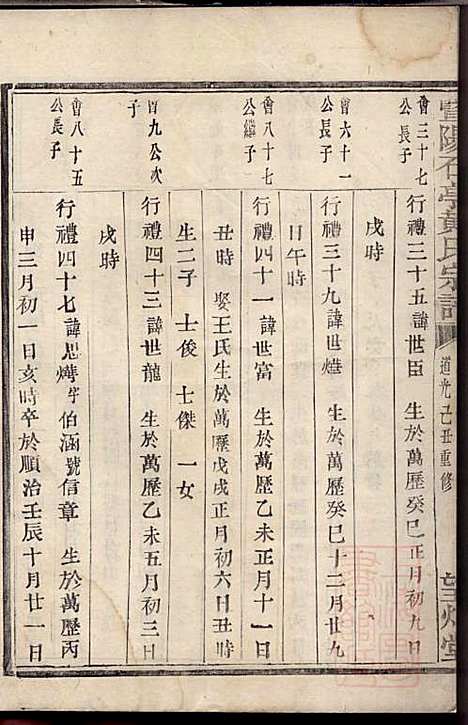 石亭黃氏宗譜
道光己丑重修
會三十七公長子
行禮三十五諱世臣 生於萬歷癸巳正月初九日
戌時
曾六十一公長子
行禮三十九諱世燁 生於萬歷癸巳十二月廿九
日午時
會八十七公繼子
行禮四十一諱世富 生於萬歷乙未正月十一日
丑時 娶王氏生於萬歷戊戌正月初六日丑時
生二子 士俊 士傑 一女
曾九公次子
行禮四十三諱世龍 生於萬歷乙未五月初三日
戌時
會八十五公長子
行禮四十七諱思燁字伯涵號信章 生於萬歷丙
申三月初一日亥時卒於順治壬辰十月廿一日